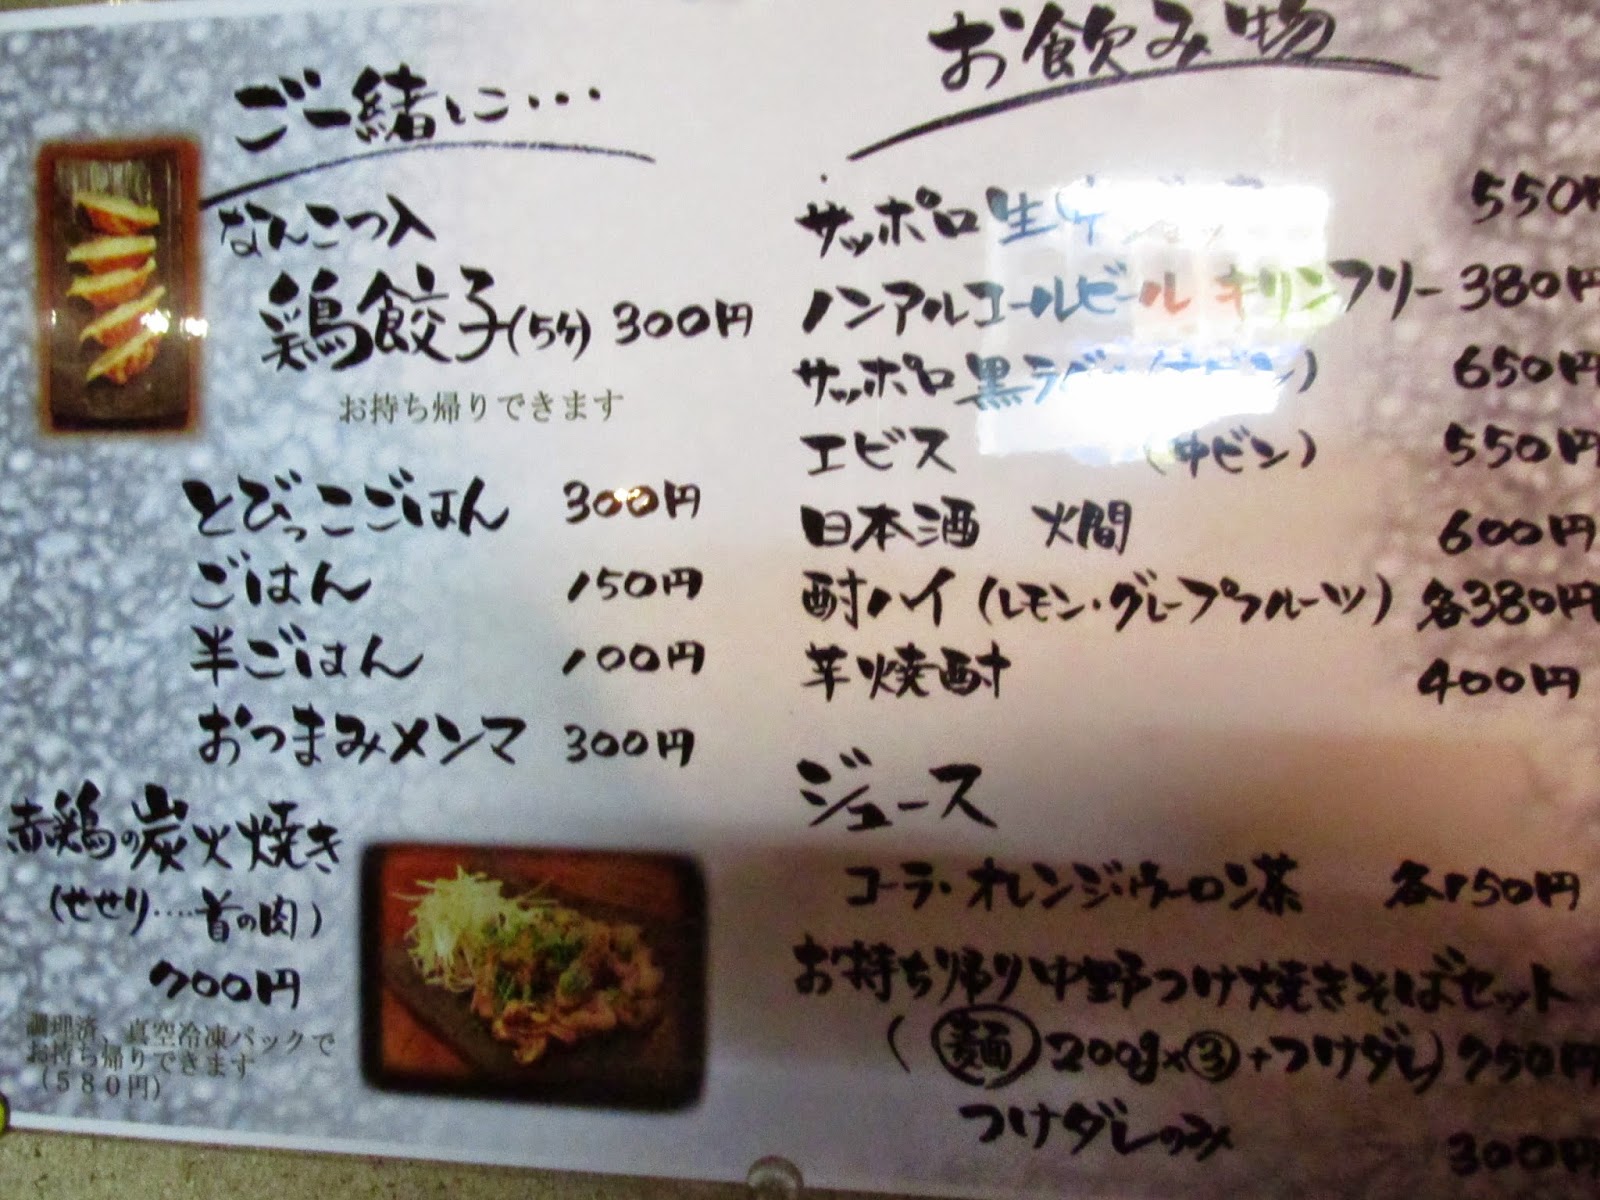 ご一緒に…
なんこつ入
鶏餃子(5ケ) 300円
お持ち帰りできます
とびっこごはん 300円
ごはん 150円
半ごはん 100円
おつまみメンマ 300円
赤鶏の炭火焼き
(せせり‥‥首の肉)
700円
調理済、真空冷凍パックで
お持ち帰りできます
(580円)
お飲み物
サッポロ生 550円
ノンアルコールビール キリンフリー 380円
サッポロ黒ラベル 650円
エビス (中ビン) 550円
日本酒 火間 600円
酎ハイ (レモン・グレープフルーツ) 各380円
芋焼酎 400円
ジュース
コーラ・オレンジ・ウーロン茶 各150円
お持ち帰り中野つけ焼きそばセット
(麺200g×③+つけダレ) 750円
つけダレのみ 300円